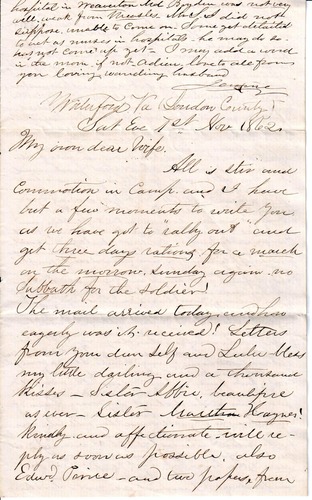 hospital in Md Boyden was not very
well, weak from Measles &c, I did not
suppose, unable to Come on, some get detailed
to act as nurses in hospitals. he may do so
has not come up yet – I may add a word
in the morn if not adieu, love to all from
you loving, wandering husband
Waterford Va Loudon County
Sat Eve 1st Nov 1862.
My own dear Wife.
All is stir and
Commotion in Camp, and I have
but a few moments to write you
as we have got to "rally out" and
get three days rations for a march
on the morrow, Sunday again. no
Sabbath for the Soldier!
The mail arrived today, and how
eagerly was it received! Letters
from you dear self and Lulu bless
my little darling and a thousand
Kisses – Sister Abbie, beautiful
as ever – Sister Haynes!
Kindly and affectionate will re-
ply as soon as possible, also
Edwd. – and two papers, from